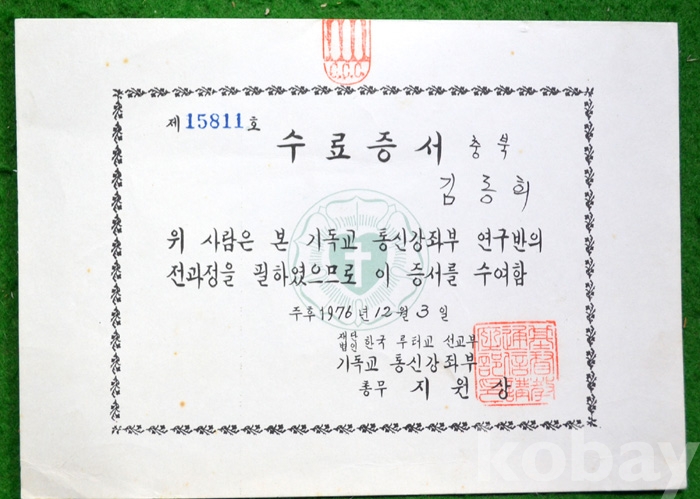 C.C.C.
제 15811 호
수료증서 충북
김종희
위 사람은 본 기독교 통신강좌부 연구반의
전과정을 필하였으므로 이 증서를 수여함
주후 1976년 12월 3일
재단법인 한국 루터교 선교부
기독교 통신강좌부
총무 지원상
基督敎通信講座部印
kobay